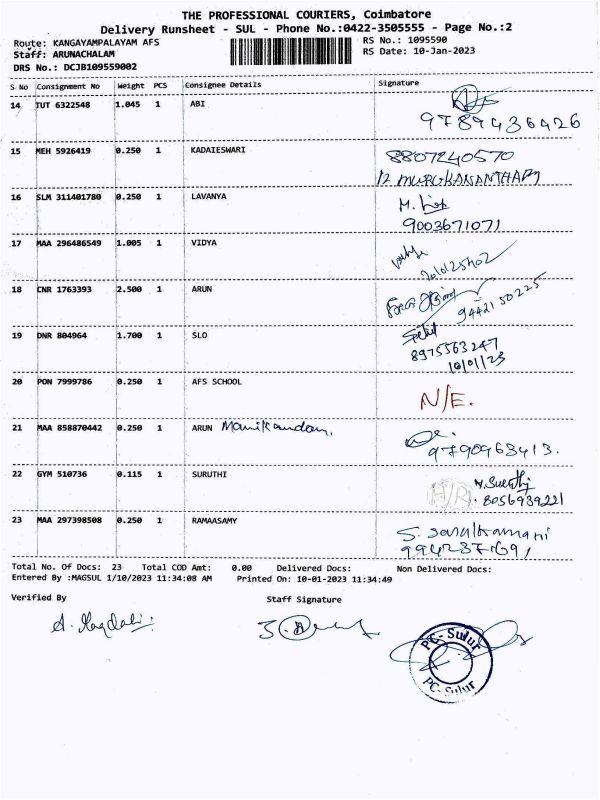 THE PROFESSIONAL COURIERS, Coimbatore
Delivery Runsheet - SUL - Phone No.:0422-3505555 - Page No.:2
Route: KANGAYAMPALAYAM AFS RS No.: 1095590
Staff: ARUNACHALAM RS Date: 10-Jan-2023
DRS No.: DCJB109559002
S No Consignment No Weight PCS Consignee Details Signature
14 TUT 6322548 1.045 1 ABI
9789436426
15 MEH 5926419 0.250 1 KADAIESWARI 8807240570
16 SLM 311401780 0.250 1 LAVANYA M.
9003671071
17 MAA 296486549 1.005 1 VIDYA
18 CNR 1763393 2.500 1 ARUN 9442150225
19 DNR 804964 1.700 1 SLO
8975563247
10/01/23
20 PON 7999786 0.250 1 AFS SCHOOL N/E.
21 MAA 858870442 0.250 1 ARUN Manikandan.
9790963413.
22 GYM 510736 0.115 1 SURUTHI
H/R 8056939221
23 MAA 297398508 0.250 1 RAMAASAMY S.
Total No. Of Docs: 23 Total COD Amt: 0.00 Delivered Docs: Non Delivered Docs:
Entered By :MAGSUL 1/10/2023 11:34:08 AM Printed On: 10-01-2023 11:34:49
Verified By Staff Signature
PC-Sulur
PC-Sulur